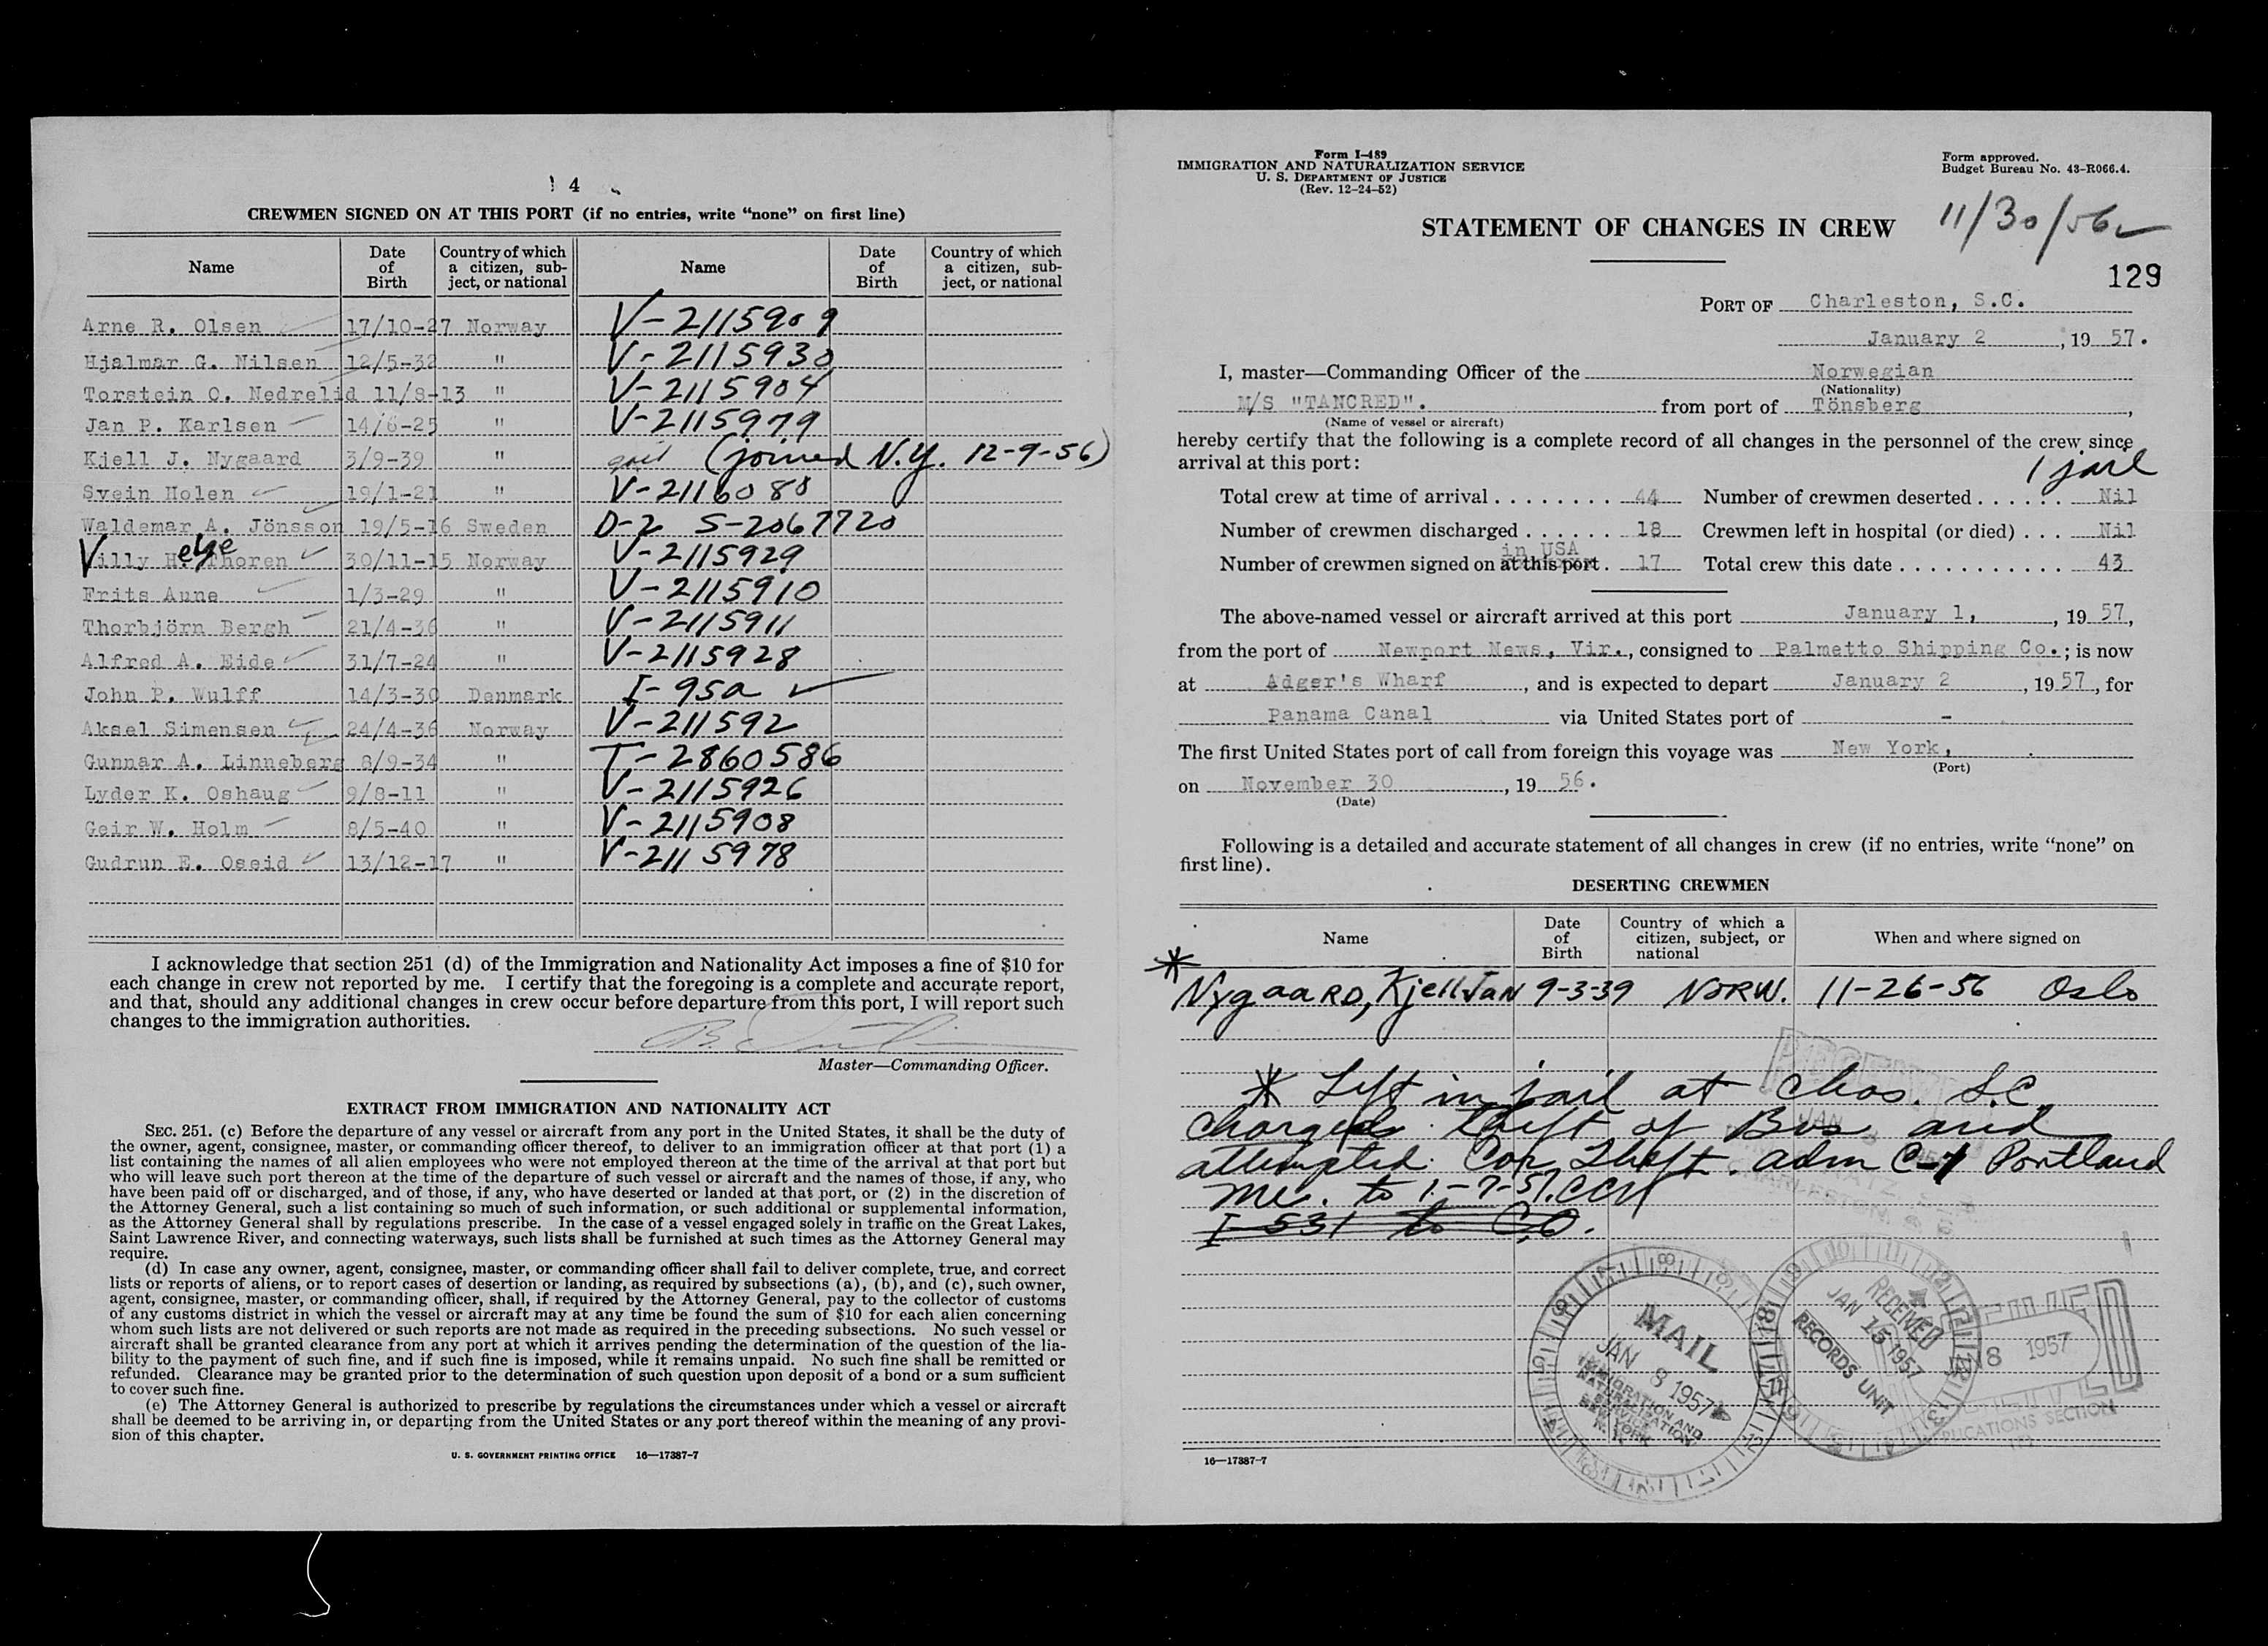 4
CREWMEN SIGNED ON AT THIS PORT (if no entries, write “none” on first line)
Name Date of Birth Country of which a citizen, subject, or national Name Date of Birth Country of which a citizen, subject, or national
Arne R. Olsen 17/10-27 Norway V-2115909
Hjalmar G. Nilsen 12/5-32 " V-2115930
Torstein O. Nedrelid 11/8-13 " V-2115904
Jan P. Karlsen 14/6-25 " V-2115979
Kjell J. Nygaard 3/9-39 " jail (joined N.Y. 12-9-56)
Svein Holen 19/1-21 " V-2116088
Waldemar A. Jönsson 19/5-16 Sweden D-2 S-2067720
Villy Helge Thoren 30/11-15 Norway V-2115929
Frits Aune 1/3-29 " V-2115910
Thorbjörn Bergh 21/4-36 " V-2115911
Alfred A. Eide 31/7-24 " V-2115928
John P. Wulff 14/3-30 Denmark I-95a
Aksel Simensen 24/4-36 Norway V-211592
Gunnar A. Linneberg 8/9-34 " T-2860586
Lyder K. Oshaug 9/8-11 " V-2115926
Geir W. Holm 8/5-40 " V-2115908
Gudrun E. Oseid 13/12-17 " V-2115978
I acknowledge that section 251 (d) of the Immigration and Nationality Act imposes a fine of $10 for
each change in crew not reported by me. I certify that the foregoing is a complete and accurate report,
and that, should any additional changes in crew occur before departure from this port, I will report such
changes to the immigration authorities.
Master—Commanding Officer.
EXTRACT FROM IMMIGRATION AND NATIONALITY ACT
SEC. 251. (c) Before the departure of any vessel or aircraft from any port in the United States, it shall be the duty of
the owner, agent, consignee, master, or commanding officer thereof, to deliver to an immigration officer at that port (1) a
list containing the names of all alien employees who were not employed thereon at the time of the arrival at that port but
who will leave such port thereon at the time of the departure of such vessel or aircraft and the names of those, if any, who
have been paid off or discharged, and of those, if any, who have deserted or landed at that port, or (2) in the discretion of
the Attorney General, such a list containing so much of such information, or such additional or supplemental information,
as the Attorney General shall by regulations prescribe. In the case of a vessel engaged solely in traffic on the Great Lakes,
Saint Lawrence River, and connecting waterways, such lists shall be furnished at such times as the Attorney General may
require.
(d) In case any owner, agent, consignee, master, or commanding officer shall fail to deliver complete, true, and correct
lists or reports of aliens, or to report cases of desertion or landing, as required by subsections (a), (b), and (c), such owner,
agent, consignee, master, or commanding officer, shall, if required by the Attorney General, pay to the collector of customs
of any customs district in which the vessel or aircraft may at any time be found the sum of $10 for each alien concerning
whom such lists are not delivered or such reports are not made as required in the preceding subsections. No such vessel or
aircraft shall be granted clearance from any port at which it arrives pending the determination of the question of the lia-
bility to the payment of such fine, and if such fine is imposed, while it remains unpaid. No such fine shall be remitted or
refunded. Clearance may be granted prior to the determination of such question upon deposit of a bond or a sum sufficient
to cover such fine.
(e) The Attorney General is authorized to prescribe by regulations the circumstances under which a vessel or aircraft
shall be deemed to be arriving in, or departing from the United States or any port thereof within the meaning of any provi-
sion of this chapter.
U. S. GOVERNMENT PRINTING OFFICE 16—17387-7
Form I-489
IMMIGRATION AND NATURALIZATION SERVICE
U. S. DEPARTMENT OF JUSTICE
(Rev. 12-24-52)
Form approved.
Budget Bureau No. 43-R066.4.
STATEMENT OF CHANGES IN CREW
11/30/56
129
PORT OF Charleston, S.C.
January 2, 1957.
I, master—Commanding Officer of the Norwegian
(Nationality)
M/S "TANCRED". from port of Tönsberg,
(Name of vessel or aircraft)
hereby certify that the following is a complete record of all changes in the personnel of the crew since
arrival at this port:
1 jail
Total crew at time of arrival 44 Number of crewmen deserted Nil
Number of crewmen discharged 18 Crewmen left in hospital (or died) Nil
in USA
Number of crewmen signed on at this port. 17 Total crew this date 43
The above-named vessel or aircraft arrived at this port January 1, 1957,
from the port of Newport News, Vir., consigned to Palmetto Shipping Co.; is now
at Adger's Wharf, and is expected to depart January 2, 1957, for
Panama Canal via United States port of -
The first United States port of call from foreign this voyage was New York,
(Port)
on November 30, 1956.
(Date)
Following is a detailed and accurate statement of all changes in crew (if no entries, write “none” on
first line).
DESERTING CREWMEN
Name Date of Birth Country of which a citizen, subject, or national When and where signed on
* Nygaard, Kjell Jan 9-3-39 NORW. 11-26-56 Oslo
* Left in jail at Chas. S.C.
Charged: theft of Bus and
attempted Car Theft. adm C-1 Portland
Me. to 1-7-57. CCM
I-531 to C.O.
MAIL
JAN 8 1957
IMMIGRATION AND
NATURALIZATION
SERVICE
NEW YORK
N. Y.
RECEIVED
JAN 15 1957
RECORDS UNIT
8 1957
16—17387-7